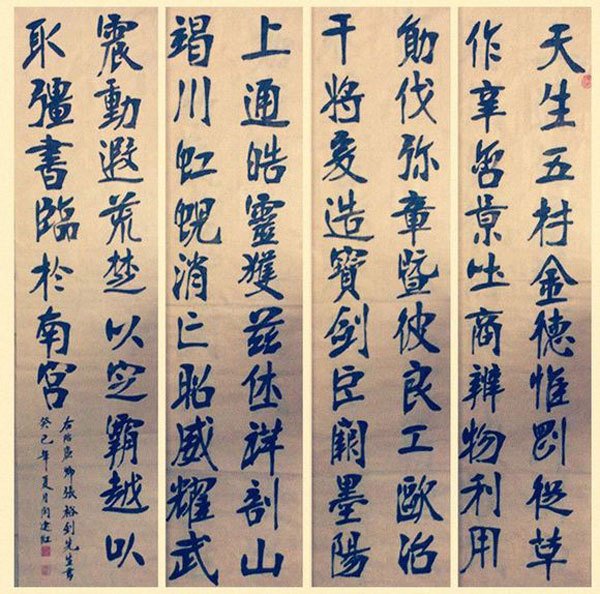 天生五材金德惟剛從革
作辛含景吐商辨物利用
勛伐弥章暨彼良工歐冶
干將爰造寶劍巨闕墨陽
上通皓靈獲茲休祥剖山
竭川虹蜺消亡昭威耀武
震動遐荒楚以定霸越以
取彊書臨於南宮
右臨師張裕釗先生書
癸巳年夏月建紅